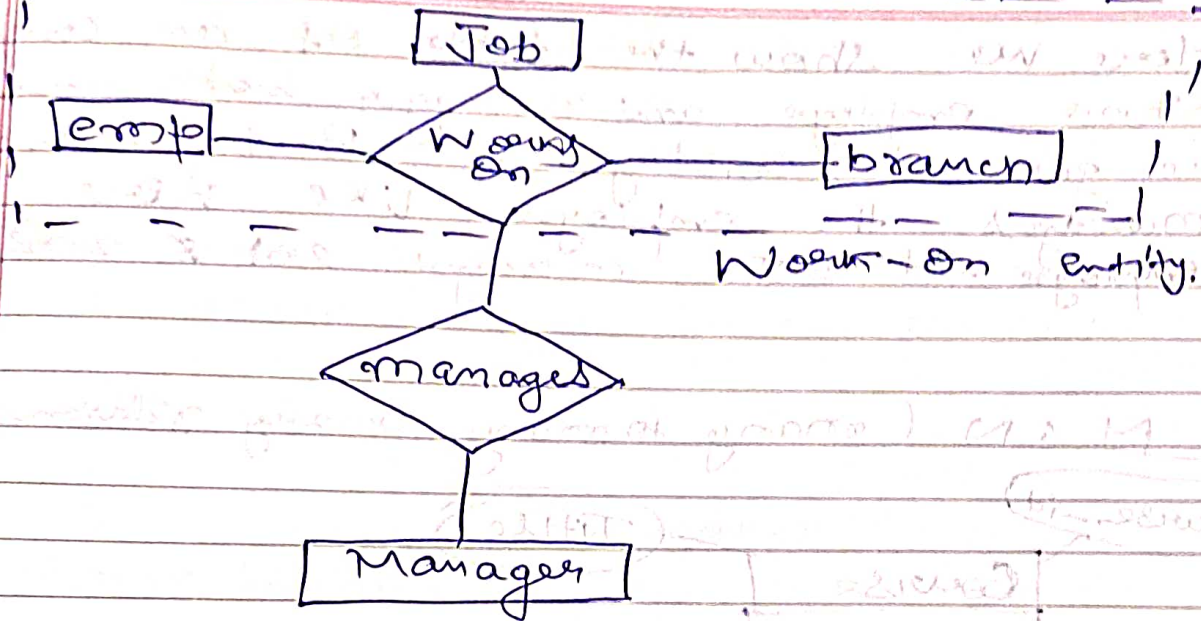 Job
emp
Works
On
branch
Work-On entity.
manages
Manager